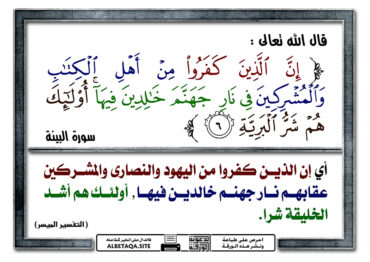 قال الله تعالى :
﴿ إِنَّ الَّذِينَ كَفَرُوا۟ مِنْ أَهْلِ الْكِتَٰبِ
وَالْمُشْرِكِينَ فِي نَارِ جَهَنَّمَ خَٰلِدِينَ فِيهَآ ۚ أُو۟لَٰٓئِكَ
هُمْ شَرُّ الْبَرِيَّةِ ٦ ﴾
سورة البينة
أي إن الذين كفروا من اليهود والنصارى والمشركين
عقابهم نار جهنم خالدين فيها, أولئك هم أشد
الخليقة شرا.
(التفسير الميسر)
احرص على طباعة
ونشر هذه الورقة
فالدال على الخير كفاعله
ALBETAQA.SITE